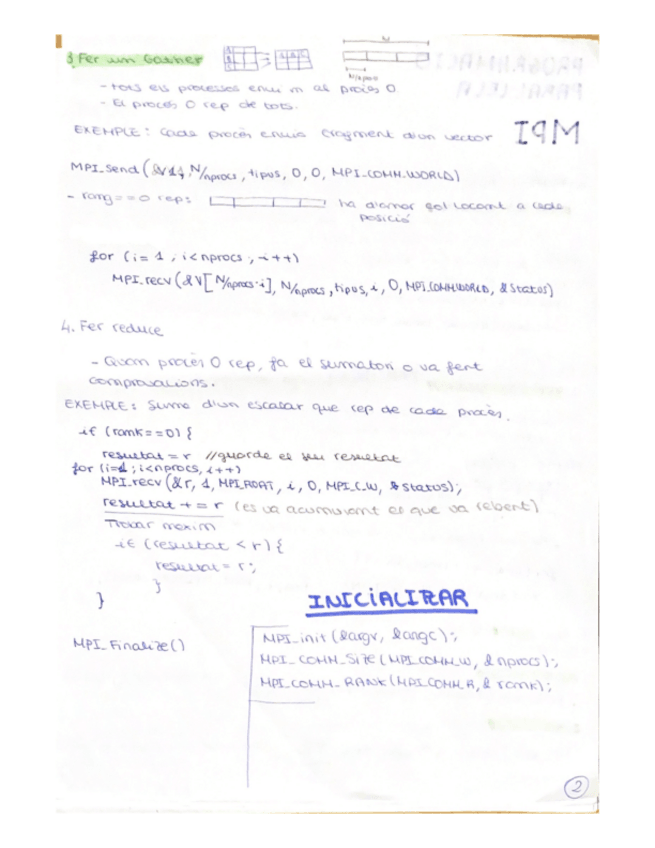 3. Fer un Gather
N
N/nprocs
- tots els processos envien al procés 0
- El procés 0 rep de tots.
EXEMPLE: Cada procés envia fragment d'un vector
MPI
MPI_Send (&v1, N/nprocs, tipus, 0, 0, MPI_COMM.WORLD)
- rang==0 rep: ha d'anar col·locant a cada
posició
for (i= 1 ; i<nprocs ; i++)
MPI_recv (&V[N/nprocs·i], N/nprocs, tipus, i, 0, MPI_COMMWORLD, &Status)
4. Fer reduce
- Quan procés 0 rep, fa el sumatori o va fent
comprovacions.
EXEMPLE: Suma d'un escalar que rep de cada procés.
if (rank==0) {
resultat = r //guarda el seu resultat
for (i=1 ; i<nprocs, i++)
MPI_recv (&r, 1, MPI_FLOAT, i, 0, MPI_C.W, &status);
resultat += r (es va acumulant el que va rebent)
Trobar maxim
if (resultat < r) {
resultat = r;
}
}
INICIALITZAR
MPI_Finalize()
MPI_init (&argv, &argc);
MPI_COMM_SIZE (MPI_COMM_W, &nprocs);
MPI_COMM_RANK (MPI_COMM_R, & rank);
2